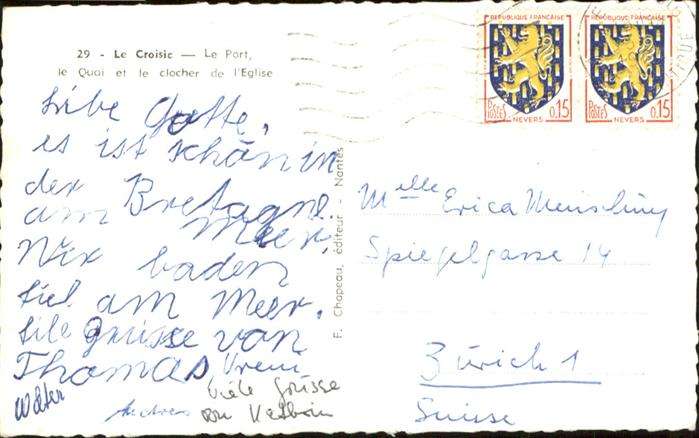 29 - Le Croisic — Le Port,
le Quai et le clocher de l'Eglise
REPUBLIQUE FRANÇAISE
POSTES
0,15
NEVERS
REPUBLIQUE FRANÇAISE
POSTES
0,15
NEVERS
Libe Gotte,
es ist schön in
der Bretagne
am Meer.
Wir baden
fiel am Meer.
file grüsse van
Thomas Vreni
Walter
Andreas
Viele Grüsse
von
F. Chapeau, éditeur - Nantes
Melle Erica
Spiegelgasse 14
Zürich 1
Suisse